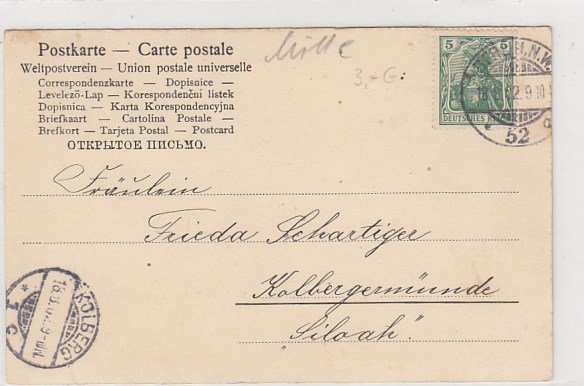 Postkarte — Carte postale
Weltpostverein — Union postale universelle
Correspondenzkarte — Dopisnice —
Levelező-Lap — Korespondenční listek
Dopisnica — Karta Korespondencyjna
Briefkaart — Cartolina Postale —
Brefkort — Tarjeta Postal — Postcard
ОТКРЫТОЕ ПИСЬМО.
3,-
5 5
DEUTSCHES REICH
N.W.
52
Fräulein
Frieda Schartiger
Kolbergermünde
„Siloah".
KOLBERG
* 1 c